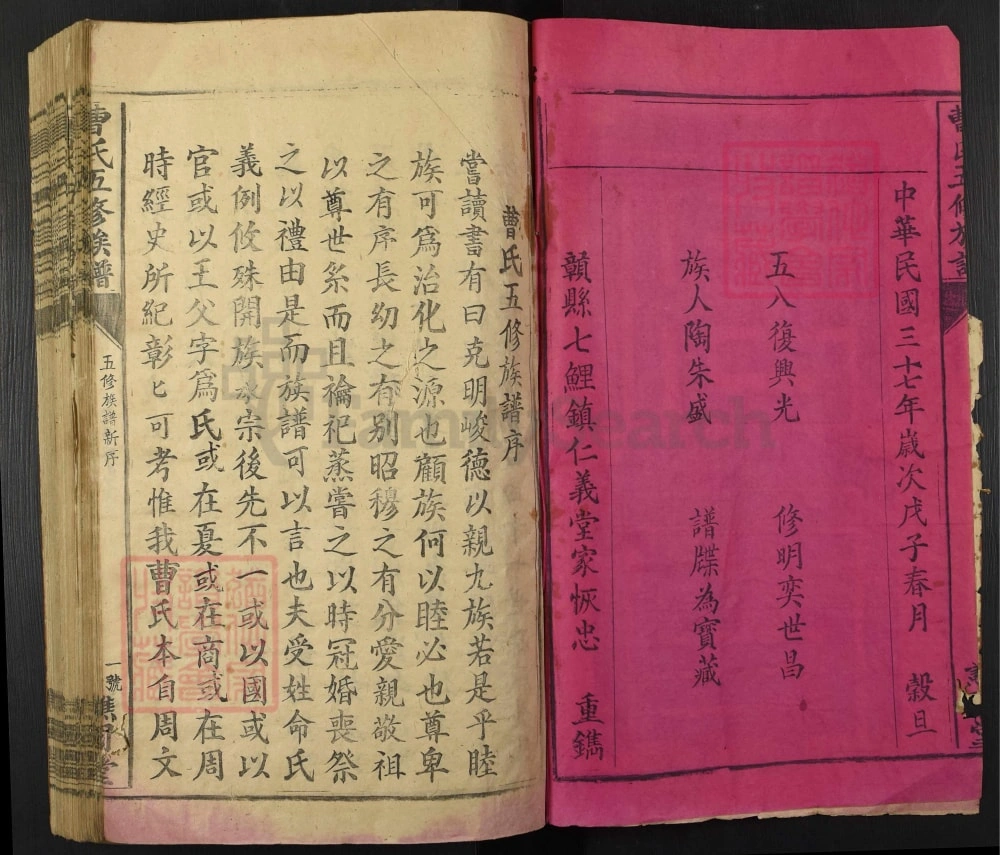 中華民國三十七年歲次戊子春月　穀旦
五八復興光　修明奕世昌
族人陶朱盛　譜牒為寶藏
贛縣七鯉鎮仁義堂家恢忠　重鐫
曹氏五修族譜序
嘗讀書有曰克明峻德以親九族若是乎睦
族可爲治化之源也顧族何以睦必也尊卑
之有序長幼之有别昭穆之有分愛親敬祖
以尊世系而且禴祀蒸嘗之以時冠婚喪祭
之以禮由是而族譜可以言也夫受姓命氏
義例攸殊開族承宗後先不一或以國或以
官或以王父字爲氏或在夏或在商或在周
時經史所紀彰匕可考惟我曹氏本自周文
曹氏五修族譜
五修族譜新序
一號
FamilySearch